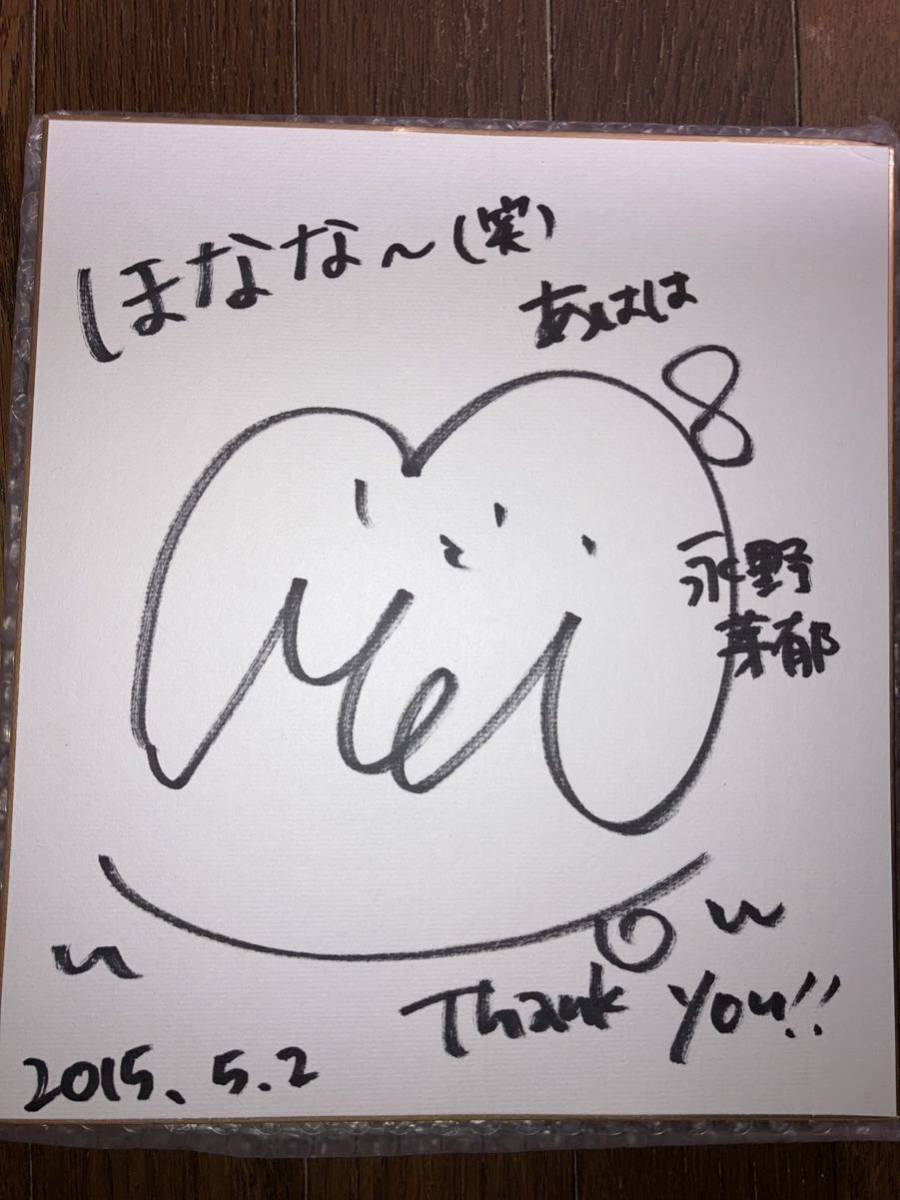 ほなな～(笑)
あはは
Mei
永野
芽郁
Thank you!!
2015、5.2